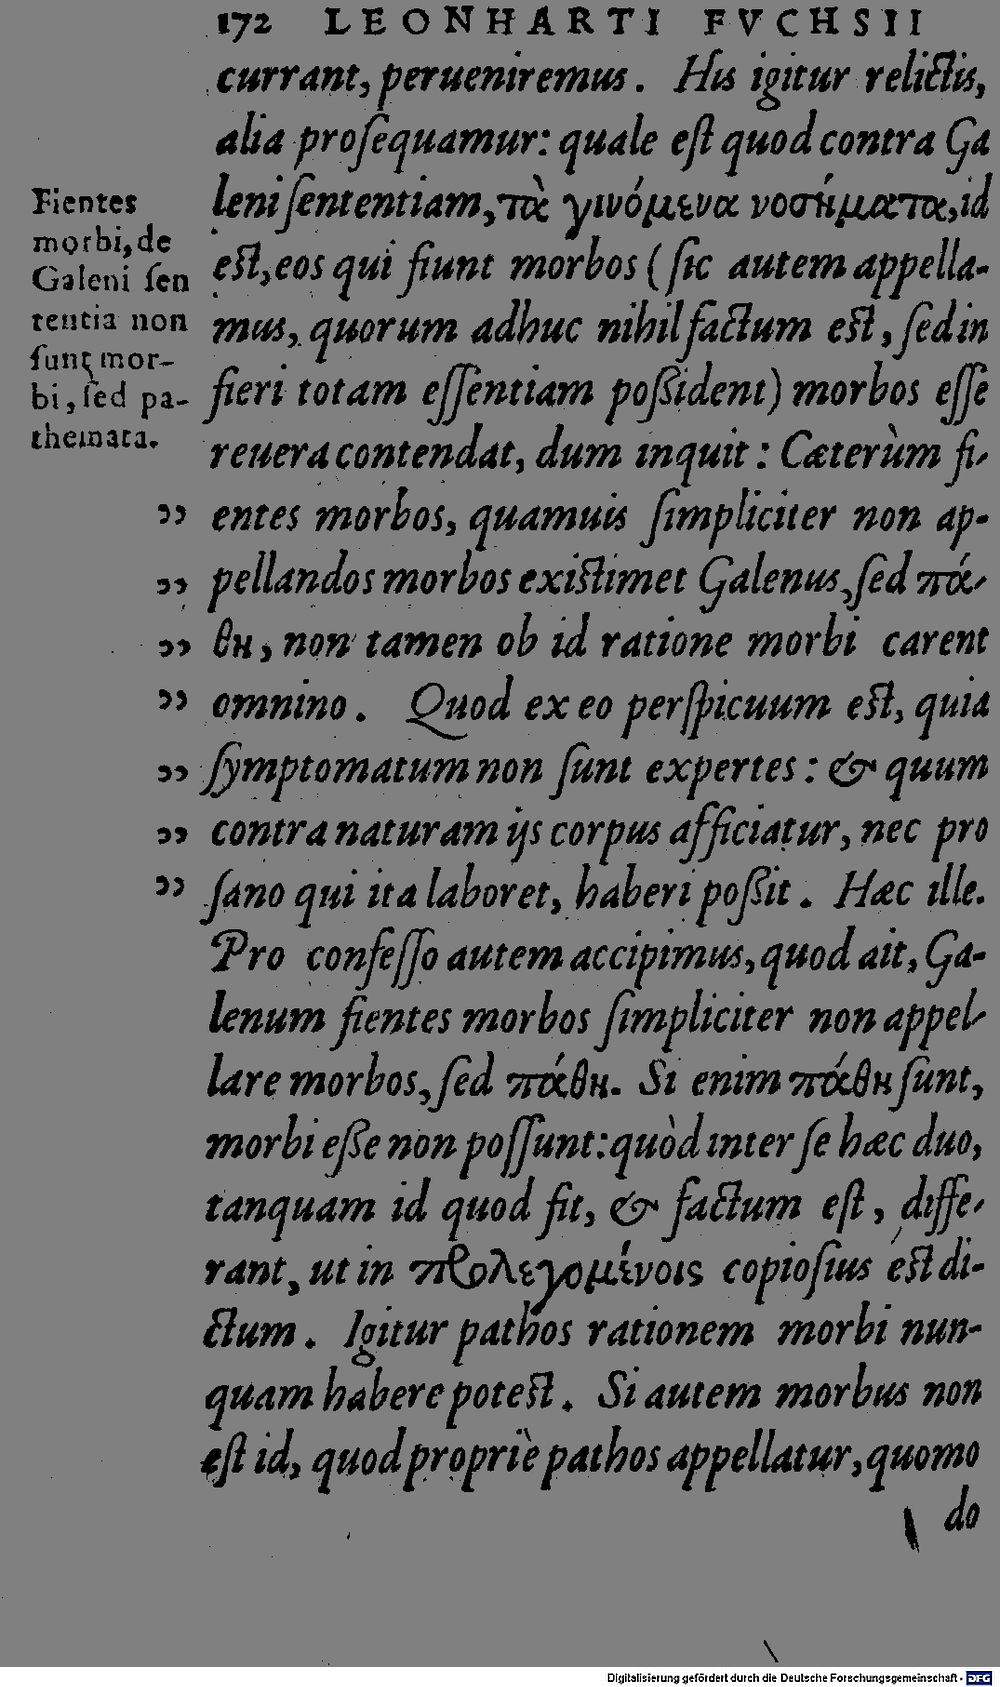 172 LEONHARTI FVCHSII
currant, perueniremus. His igitur relictis,
alia proſequamur: quale eſt quod contra Ga
leni ſententiam, τὰ γινόμενα νοσήματα, id
eſt, eos qui fiunt morbos (ſic autem appella-
mus, quorum adhuc nihil factum eſt, ſed in
fieri totam eſſentiam poßident) morbos eſſe
reuera contendat, dum inquit: Cæterùm fi-
entes morbos, quamuis ſimpliciter non ap-
pellandos morbos exiſtimet Galenus, ſed πά-
θη, non tamen ob id ratione morbi carent
omnino. Quod ex eo perſpicuum eſt, quia
ſymptomatum non ſunt expertes: & quum
contra naturam ijs corpus afficiatur, nec pro
ſano qui ita laboret, haberi poßit. Hæc ille.
Pro confeſſo autem accipimus, quod ait, Ga-
lenum fientes morbos ſimpliciter non appel-
lare morbos, ſed πάθη. Si enim πάθη ſunt,
morbi eße non poſſunt: quòd inter ſe hæc duo,
tanquam id quod fit, & factum eſt, diffe-
rant, ut in προλεγομένοις copioſius eſt di-
ctum. Igitur pathos rationem morbi nun-
quam habere poteſt. Si autem morbus non
eſt id, quod propriè pathos appellatur, quomo
do
Fientes
morbi, de
Galeni ſen
tentia non
ſunt mor-
bi, ſed pa-
themata.
Digitalisierung gefördert durch die Deutsche Forschungsgemeinschaft - DFG